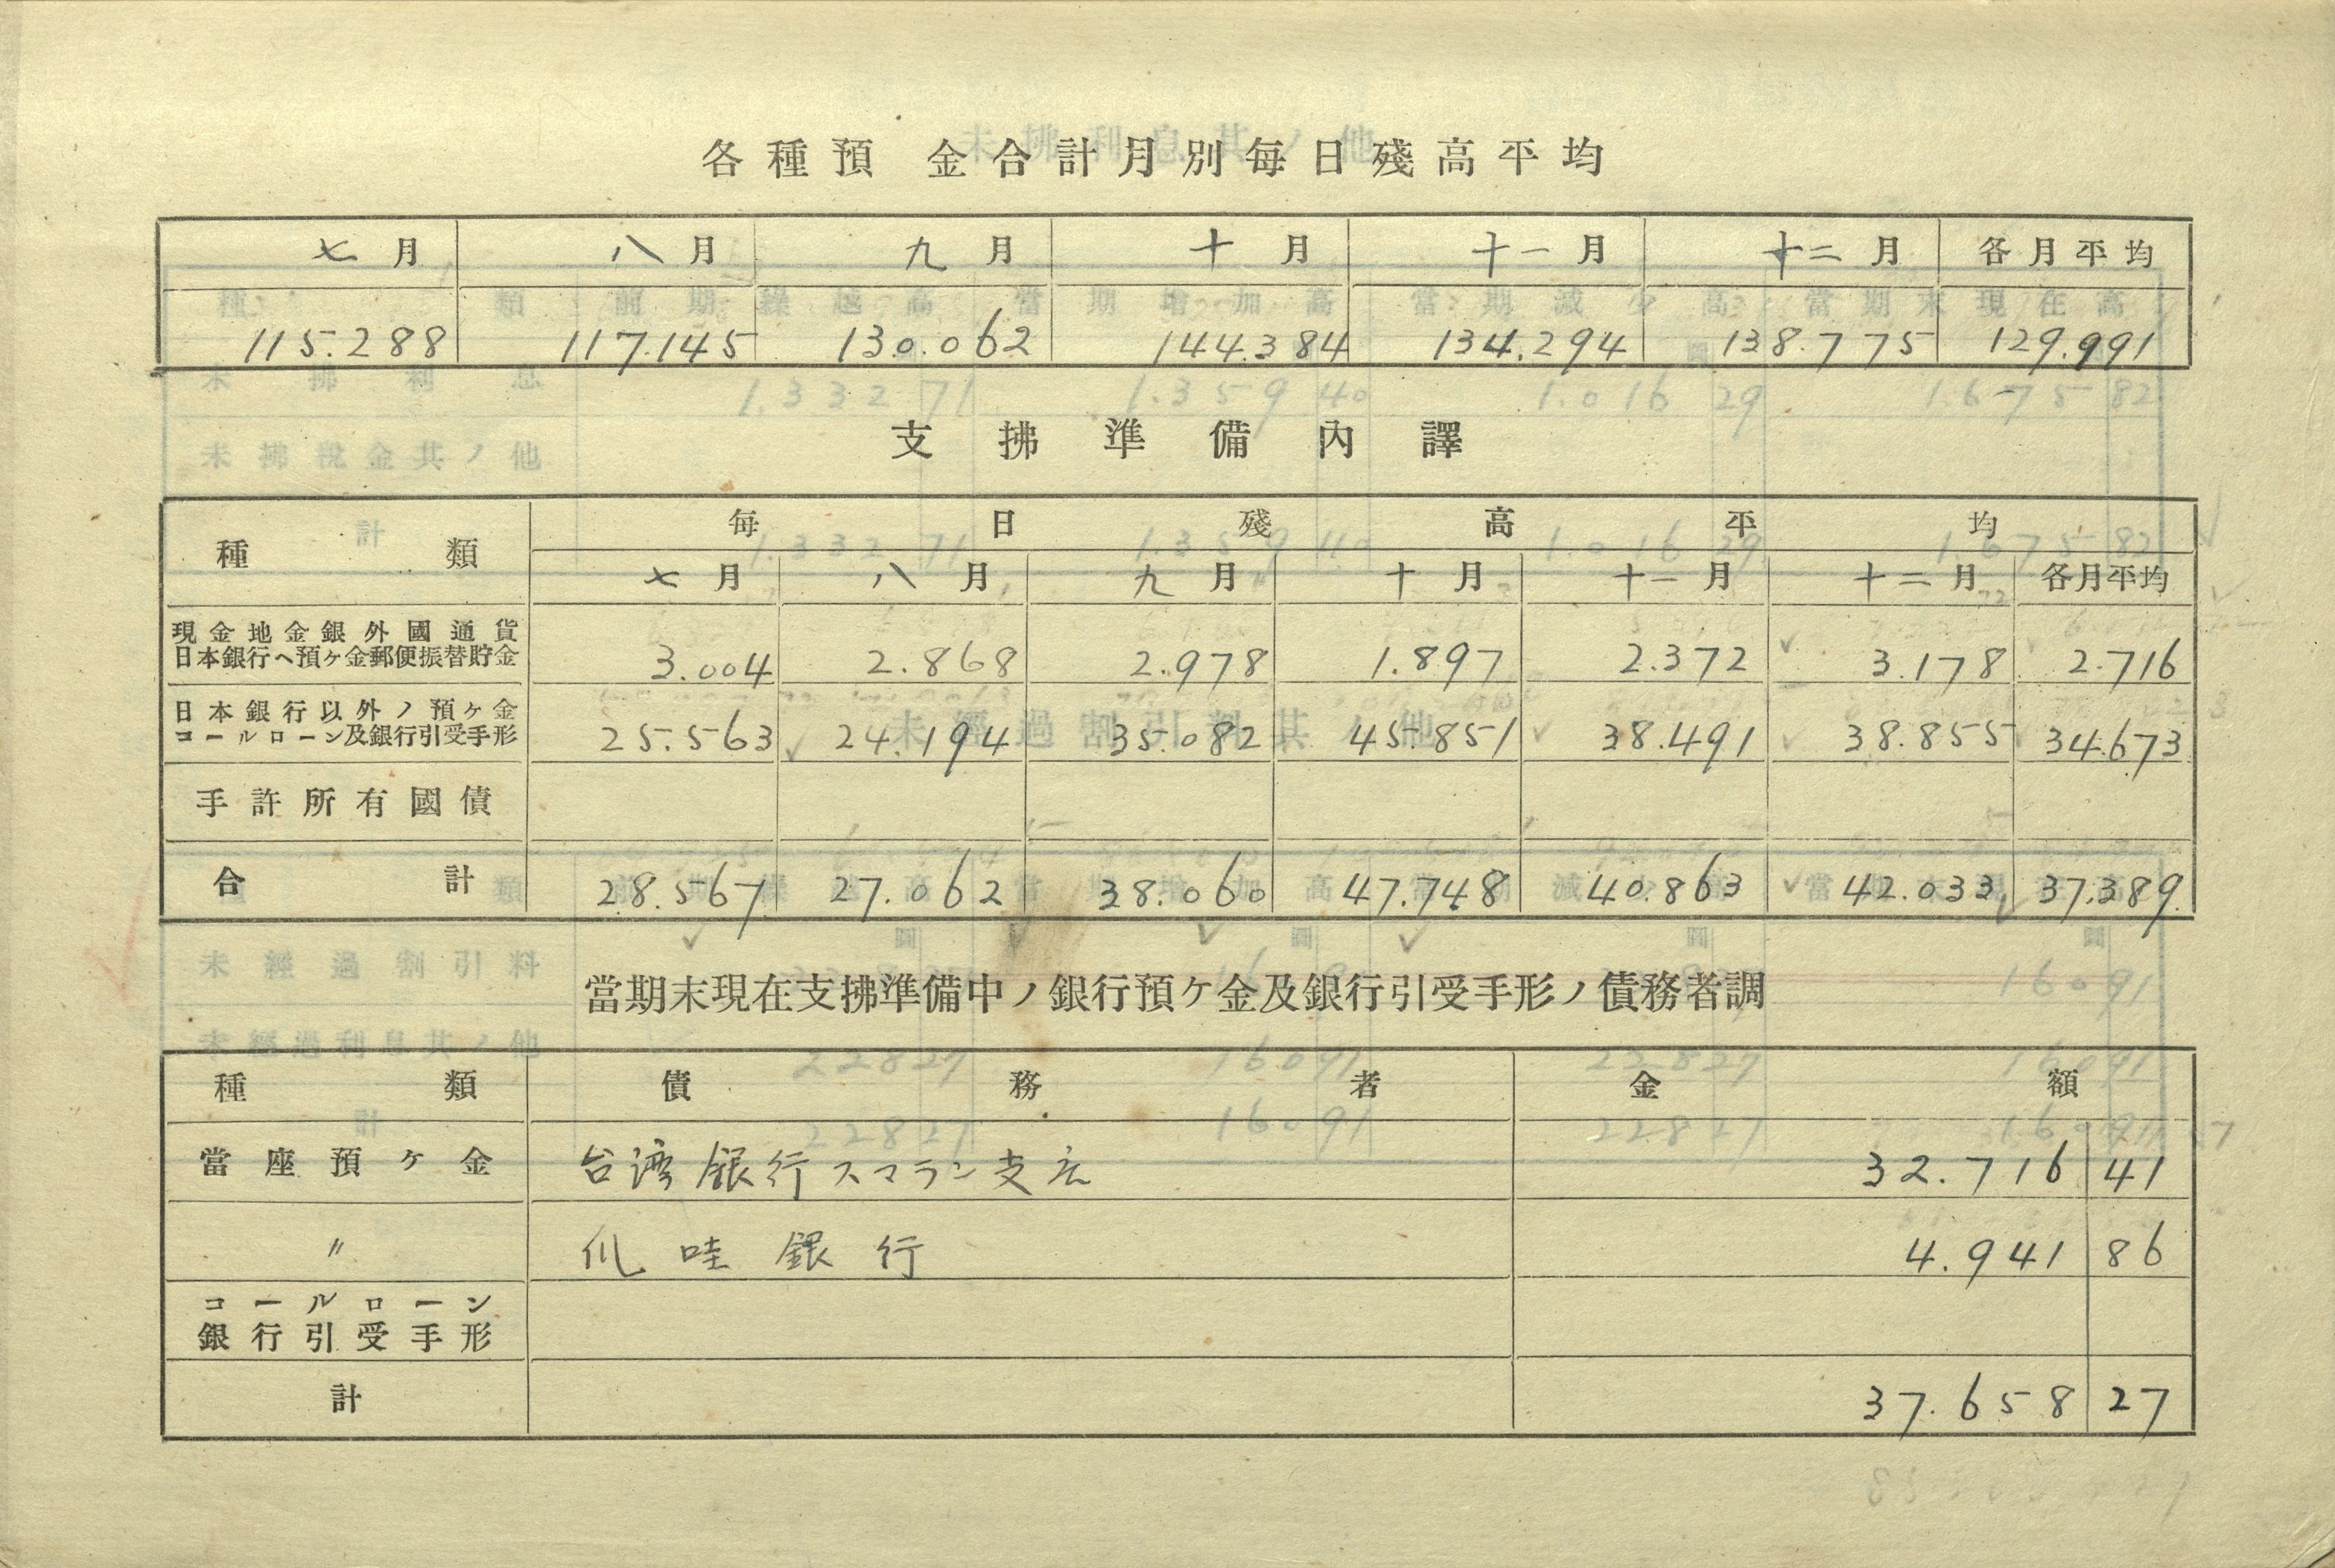 各種預金合計月別每日殘高平均
七月 八月 九月 十月 十一月 十二月 各月平均
115.288 117.145 130.062 144.384 134.294 138.775 129.991
支拂準備內譯
種類 每日殘高平均
七月 八月 九月 十月 十一月 十二月 各月平均
現金地金銀外國通貨
日本銀行ヘ預ケ金郵便振替貯金 3.004 2.868 2.978 1.897 2.372 3.178 2.716
日本銀行以外ノ預ケ金
コールローン及銀行引受手形 25.563 24.194 35.082 45.851 38.491 38.855 34.673
手許所有國債
合計 28.567 27.062 38.060 47.748 40.863 42.033 37.389
當期末現在支拂準備中ノ銀行預ケ金及銀行引受手形ノ債務者調
種類 債務者 金額
當座預ケ金 台湾銀行スマラン支店 32.716 41
〃 爪哇銀行 4.941 86
コールローン
銀行引受手形
計 37.658 27